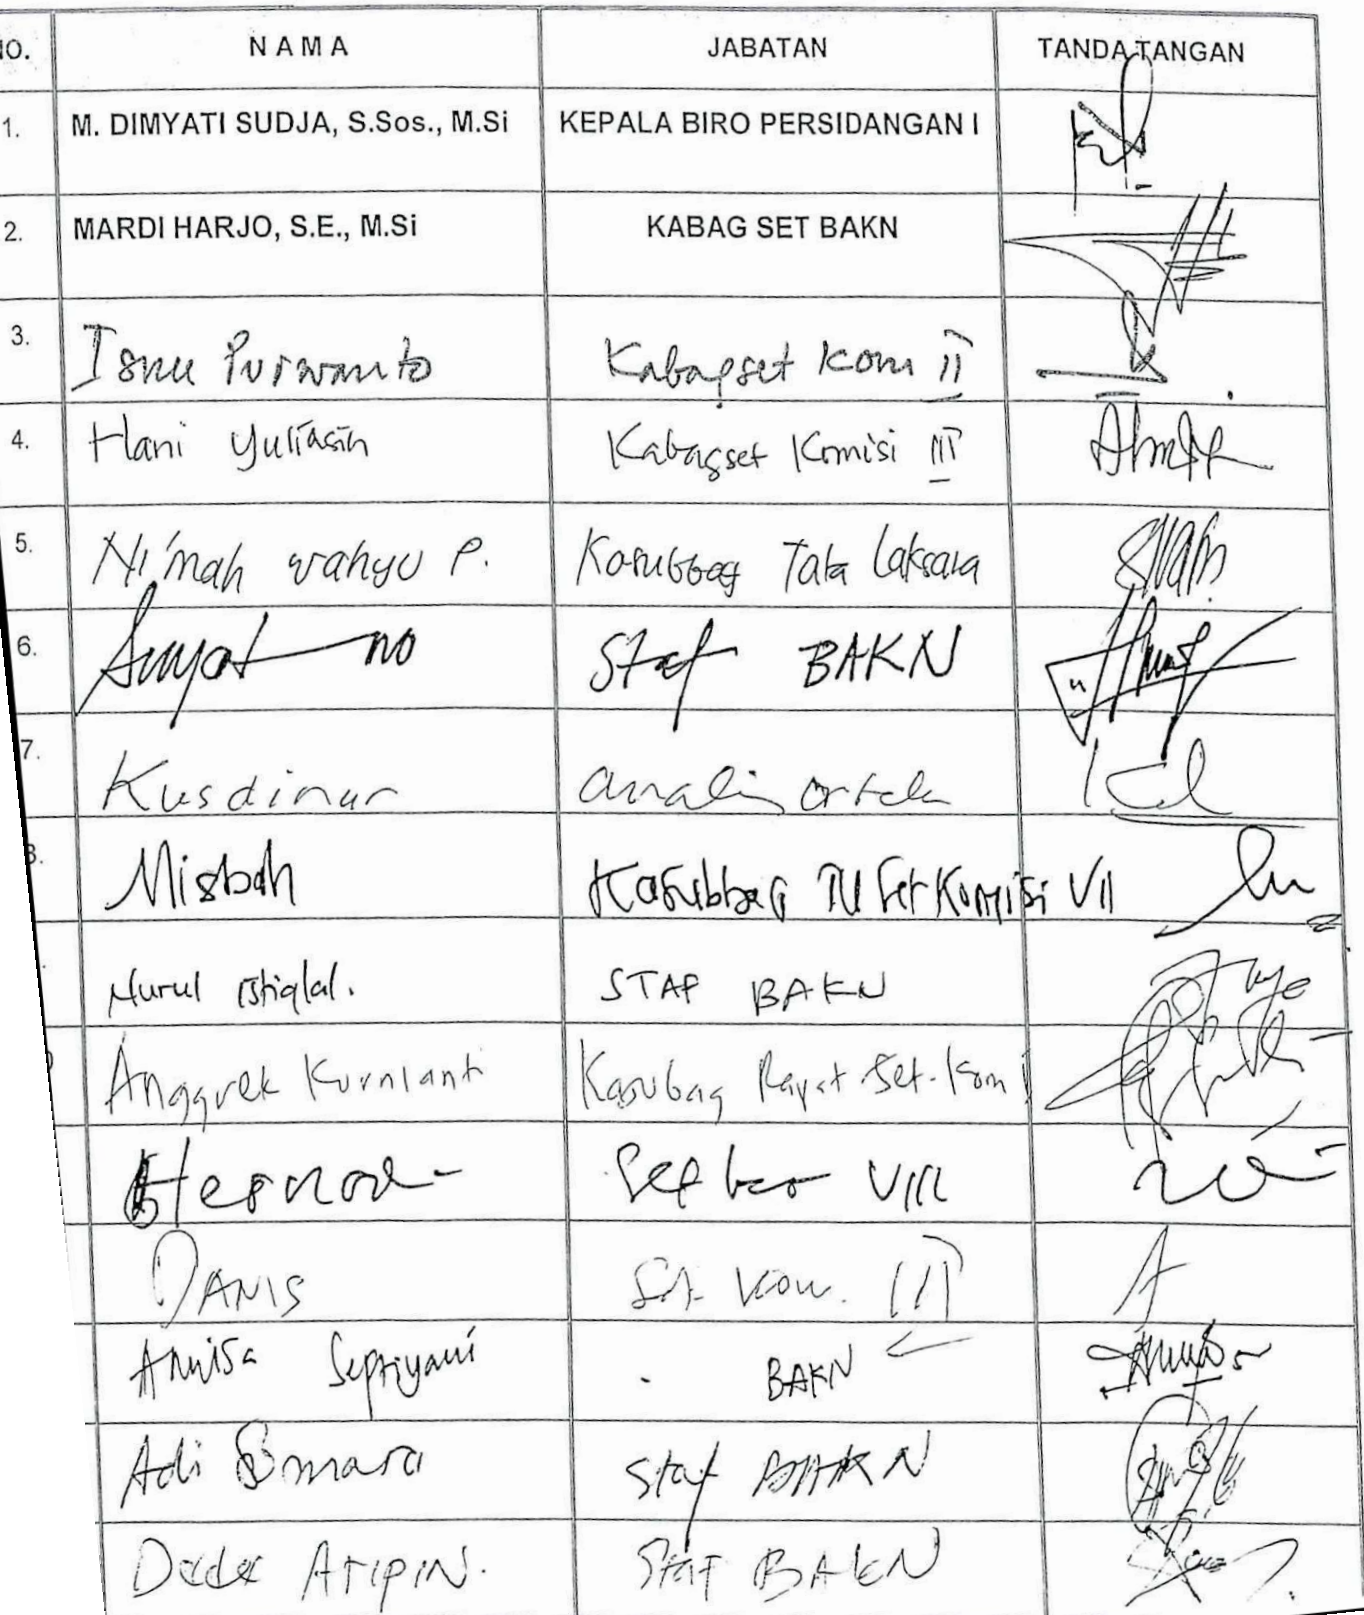 NO. NAMA JABATAN TANDA TANGAN
1. M. DIMYATI SUDJA, S.Sos., M.Si KEPALA BIRO PERSIDANGAN I
2. MARDI HARJO, S.E., M.Si KABAG SET BAKN
3. Isnu Purwanto Kabagset Kom II
4. Hani Yuliasih Kabagset Komisi III
5. Ni'mah Wahyu P. Kasubbag Tata Laksana
6. Suyatno Staf BAKN
7. Kusdinar analis ortala
8. Misbah Kasubbag TU Set Komisi VII
Nurul Istiqlal. STAF BAKN
Anggrek Kurnianti Kasubag Rapat Set. Kom I
VIII
DANIS Set Kom. III
Annisa Septiyani BAKN
Adi Staf BAKN
Dede ARIPIN. Staf BAKN